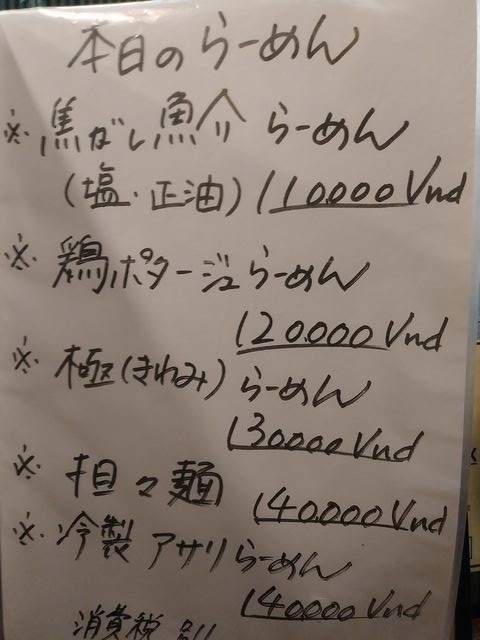 本日のらーめん
※焦がし魚介らーめん
(塩・正油) 110.000 Vnd
※鶏ポタージュらーめん
120.000 Vnd
※極(きわみ)らーめん
130.000 Vnd
※担々麺 140.000 Vnd
※冷製アサリらーめん
140.000 Vnd
消費税別